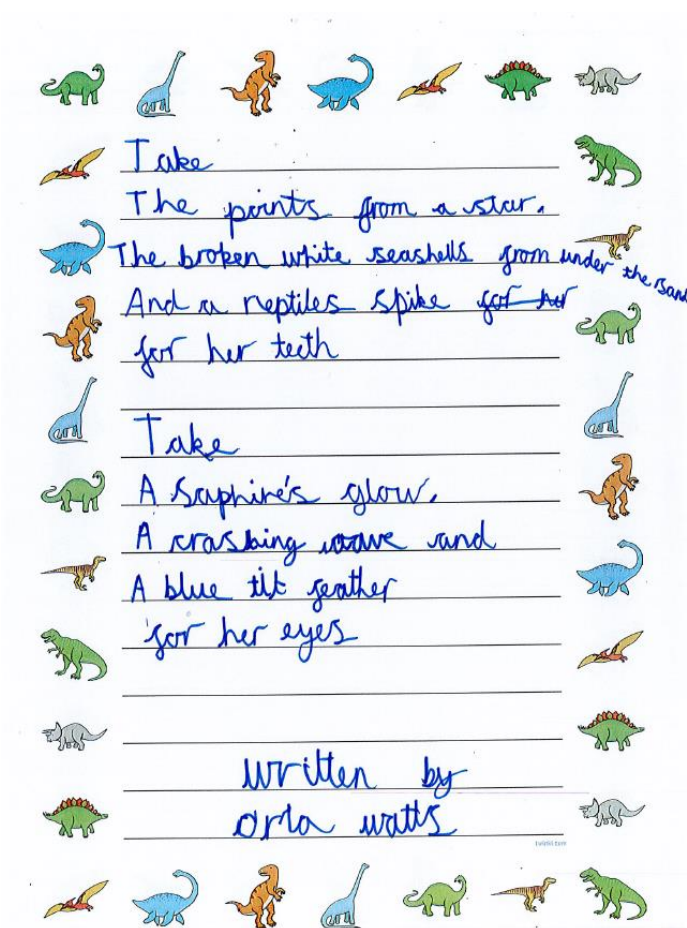 Take
The points from a star.
The broken white seashells from under the sand
And a reptiles spike for her
for her teeth
Take
A Saphire's glow.
A crashing wave and
A blue tit feather
for her eyes
written by
orla watts
twinkl.com